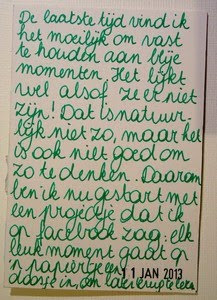 De laatste tijd vind ik
het moeilijk om vast
te houden aan blije
momenten. Het lijkt
wel alsof ze er niet
zijn! Dat is natuur-
lijk niet zo, maar het
is ook niet goed om
zo te denken. Daarom
ben ik nu gestart met
een projectje dat ik
op facebook zag: elk
leuk moment gaat op
'n papiertje en
11 JAN 2013
doosje in, om